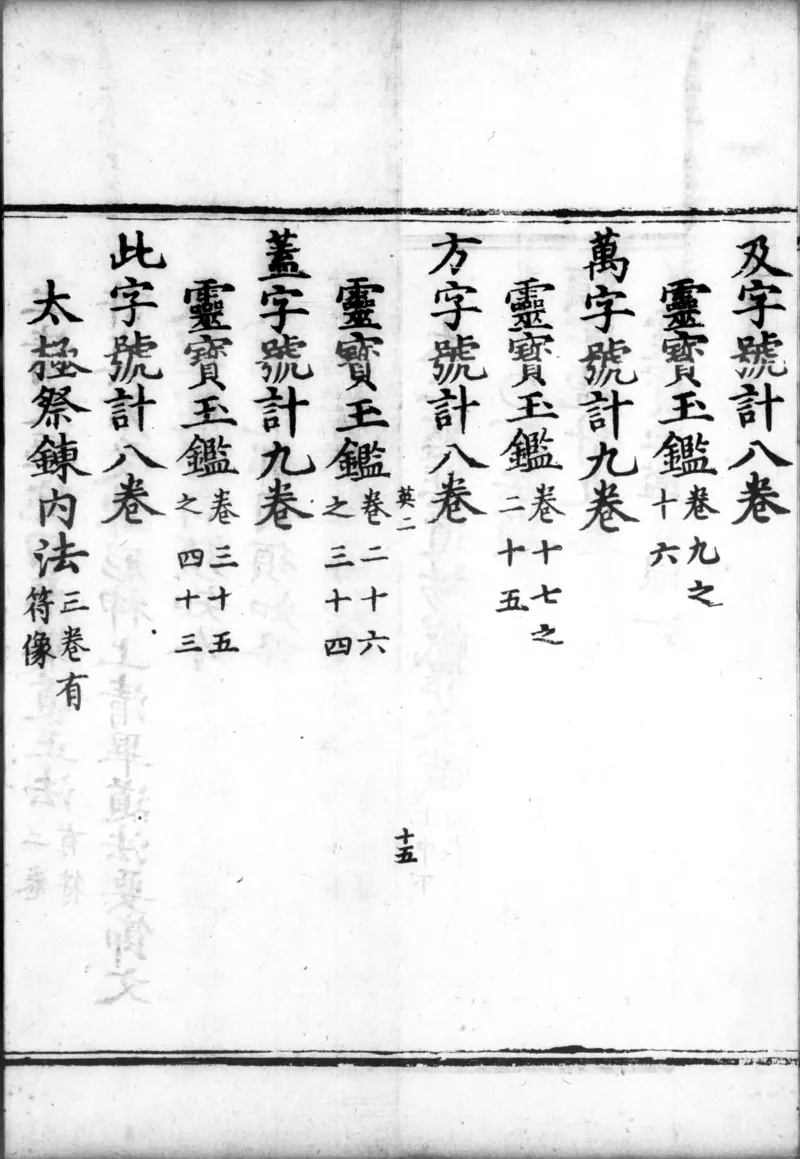 及字號計八卷
靈寶玉鑑卷九之十六
萬字號計九卷
靈寶玉鑑卷十七之二十五
方字號計八卷
英二
十五
靈寶玉鑑卷二十六之三十四
蓋字號計九卷
靈寶玉鑑卷三十五之四十三
此字號計八卷
太極祭鍊內法三卷有符像